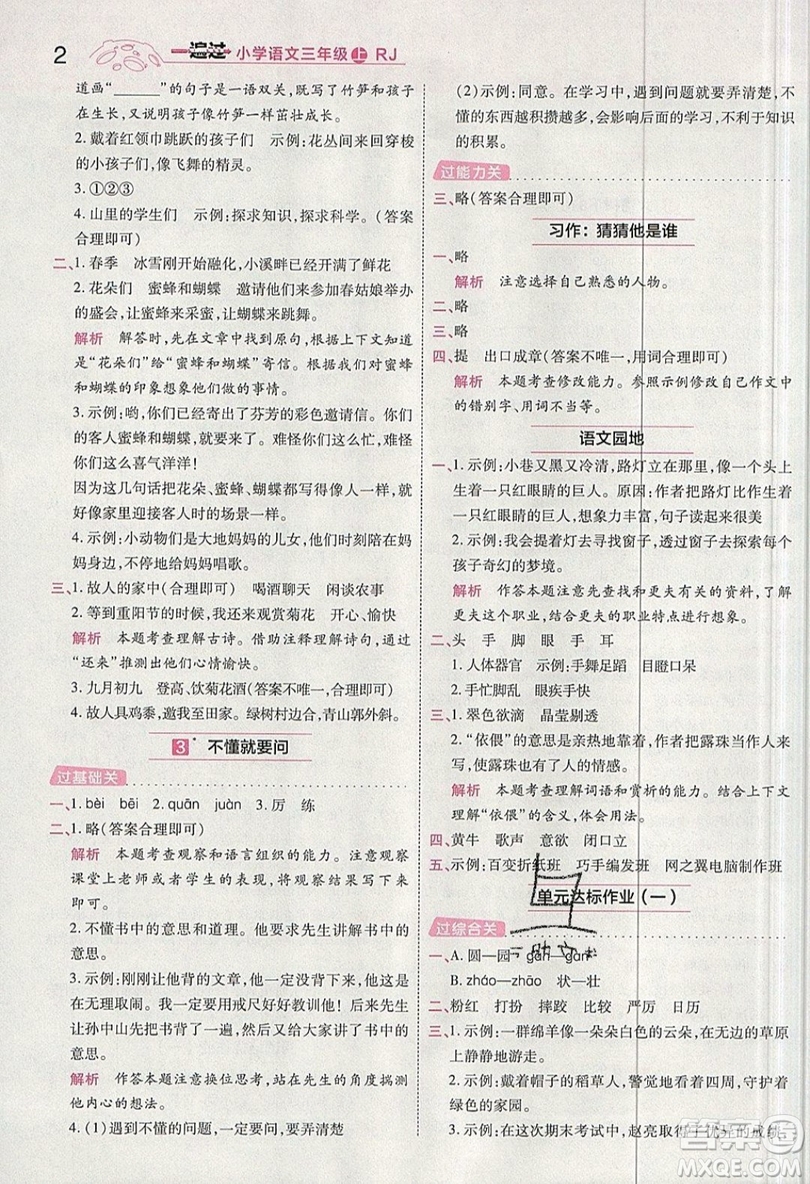 2
一遍过 小学语文三年级 上 RJ
道画“______”的句子是一语双关,既写了竹笋和孩子
在生长,又说明孩子像竹笋一样茁壮成长。
2. 戴着红领巾跳跃的孩子们 示例:花丛间来回穿梭
的小孩子们,像飞舞的精灵。
3. ①②③
4. 山里的学生们 示例:探求知识,探求科学。(答案
合理即可)
二、1. 春季 冰雪刚开始融化,小溪畔已开满了鲜花
2. 花朵们 蜜蜂和蝴蝶 邀请他们来参加春姑娘举办
的盛会,让蜜蜂来采蜜,让蝴蝶来跳舞。
解析 解答时,先在文章中找到原句,根据上下文知道
是“花朵们”给“蜜蜂和蝴蝶”寄信。然后根据对蜜蜂
和蝴蝶的印象想想它们会做的事情。
3. 示例:哟,你们已经发出了芬芳的彩色邀请信。你们
的客人蜜蜂和蝴蝶,都来了。难怪你们这么忙,难怪
你们这么喜气洋洋!
因为这几句话把花朵、蜜蜂、蝴蝶当成了人,写得
好像家里迎接客人时的场景一样。
4. 示例:小动物们是大地妈妈的儿女,他们高兴地在妈
妈身边走动,不停地给妈妈唱歌。
三、1. 故人的家中(合理即可) 喝酒聊天 闲谈农事
2. 等到重阳节的时候,我还来观赏菊花 开心、愉快
解析 本题考查理解古诗。借助注释理解诗句,通过
“还来”体会出他们心情愉快。
3. 九月初九 登高、饮菊花酒(答案不唯一,合理即可)
4. 故人具鸡黍,邀我至田家。绿树村边合,青山郭外斜。
3* 不懂就要问
过基础关
一、1. bèi bēi 2. quān juàn 3. 厉 练
二、1. 略(答案合理即可)
解析 本题考查观察和语言组织的能力。注意观察
课堂上老师或者学生的表现,展示合理、语言通顺
即可。
2. 不懂书中的意思和道理。他要求先生讲解书中的
意思。
3. 示例:刚刚让他背的文章,他一定没背过,现在一定
在无理取闹。我一定要用戒尺好好打他!后来先生
让孙中山把书背了一遍,知道他真的想了解书中的
意思。
解析 作答本题注意换位思考,站在先生的角度揣测
他内心的想法。
4. (1)遇到不懂的问题,一定要问,要弄清楚
(2)示例:同意。在学习中,遇到问题就要弄清楚,不
懂的东西越积攒越多,会影响后面的学习,不利于知识
的积累。
过能力关
三、略(答案合理即可)
习作:猜猜他是谁
一、略
解析 注意选择自己熟悉的人物。
二、略
三、略
四、提 出口成章(答案不唯一,用词合理即可)
解析 本题考查修改能力。参照示例修改自己作文中
的错别字、用词不当等。
语文园地
一、1. 示例:小巷又黑又冷清,路灯立在那里,像一个头上
生着一只红眼睛的巨人。原因:作者把路灯比作生着
一只红眼睛的巨人,想象力丰富,句子读起来很美
2. 示例:我会提着灯去寻找窗子,透过窗子去探索每个
孩子奇幻的梦境。
解析 作答本题注意先查找和更夫有关的资料,了解
更夫这个职业,结合更夫的职业特点展开想象。
二、头 手 脚 眼 手 耳
1. 人体器官 示例:手舞足蹈 目瞪口呆
2. 手忙脚乱 眼疾手快
三、1. 翠色欲滴 晶莹剔透
2. “依偎”的意思是亲热地靠着,写出露珠紧紧地靠在
一起的样子,流露出作者对露珠的喜爱,把露珠当作
有了人的情感。
解析 本题考查理解词语和赏析的能力。通过上下文
理解“依偎”的含义,体会作用即可。
四、黄牛 歌声 意欲 闭口立
五、示例:百变折纸班 巧手编发班 网之翼电脑制作班
单元达标作业(一)
过综合关
一、A. 圆—园
B. zháo—zhāo 状—壮
二、粉红 打扮 摔跤 比较 严厉 日历
三、1. 示例:一群绵羊像一朵朵白色的云,在无边的草原
上静静地游走。
2. 示例:戴着帽子的稻草人,警觉地看着四周,守护着
绿色的家园。
3. 示例:在这次期末考试中,赵亮取得了优异的成绩。
答案圈
MXQE.COM